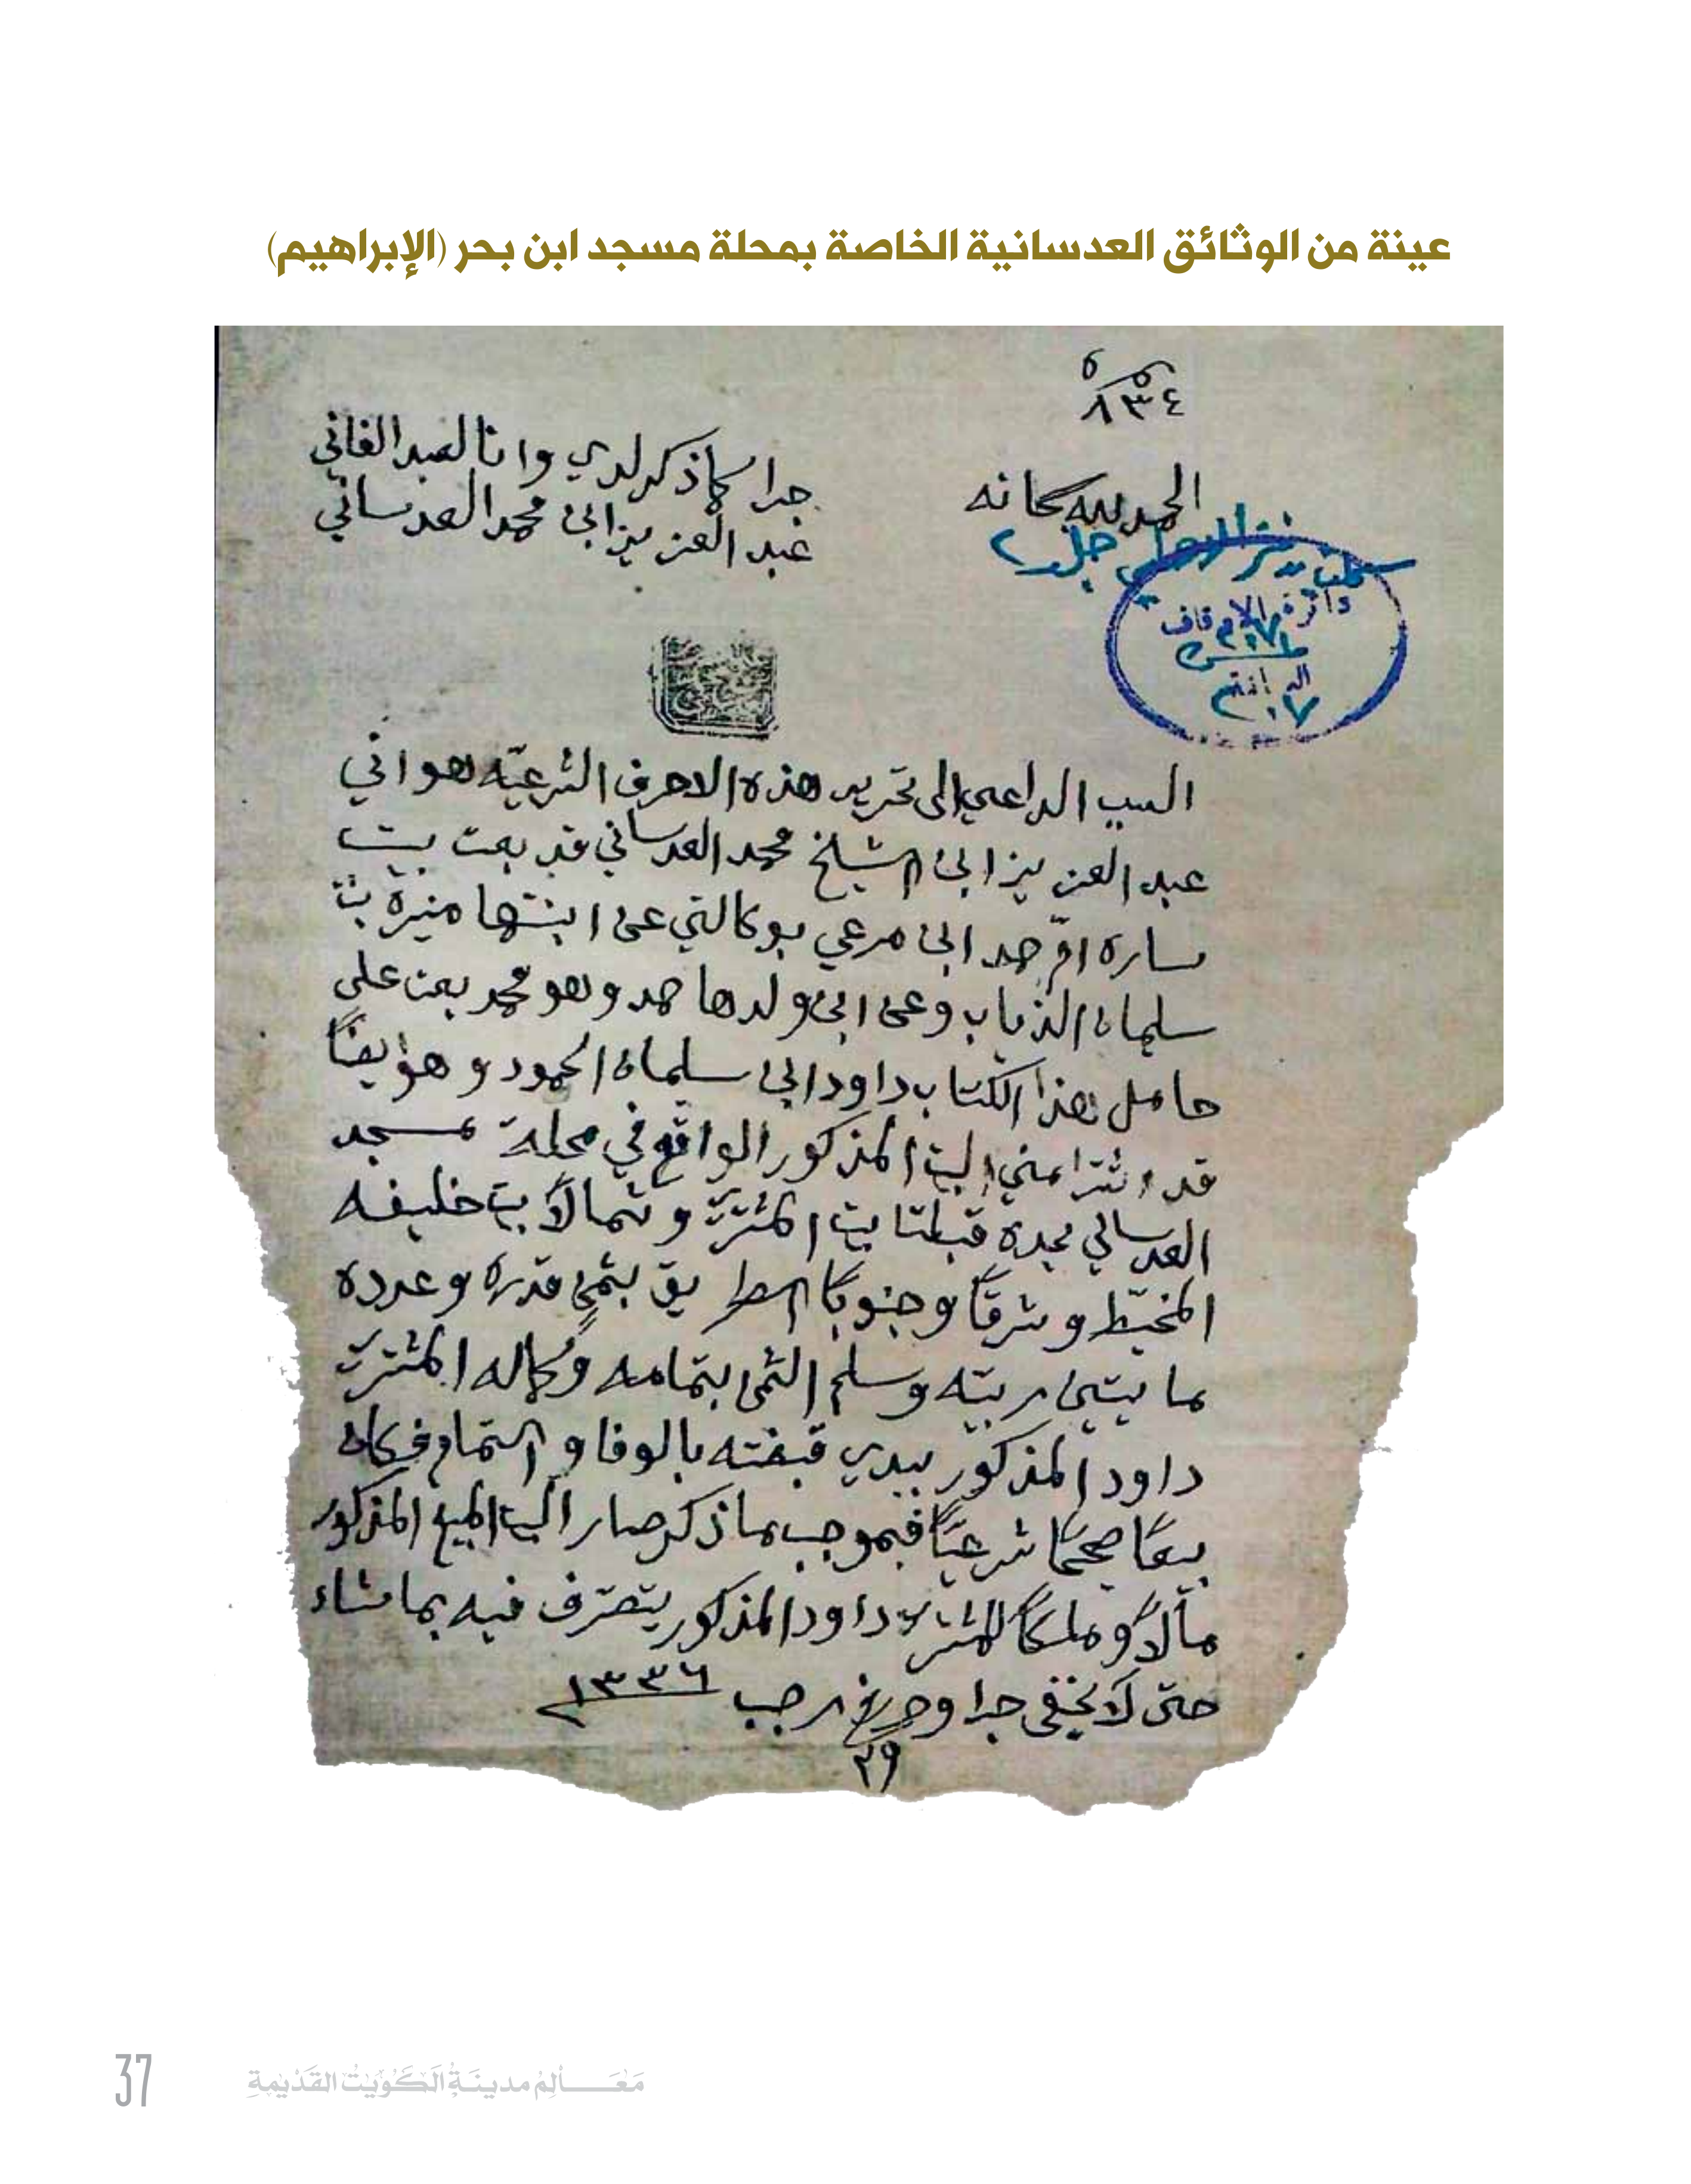 عينة من الوثائق العدسانية الخاصة بمحلة مسجد ابن بحر (الإبراهيم)
٨٣٤
الحمد لله سبحانه
جرا كما ذكر لدي وانا العبد الفاني
عبد العزيز ابن محمد العدساني
دائرة الاوقاف
السبب الداعي الى تحرير هذه الاحرف الشرعيّه هو اني
عبد العزيز ابن الشيخ محمد العدساني قد بعت بيت
ساره امّ حمد ابن مرعي بوكالتي عن ابنتها منيرة بنت
سلمان الذياب وعن ابن ولدها حمد وهو محمد بعت على
حامل هذا الكتاب داود ابن سلمان الحمود وهو ايضًا
قد اشترا مني البيت المذكور الواقع في محلة مسجد
العدساني يحده قبلتا بيت المشتري وشمالًا بيت خليفه
المخيّط وشرقًا وجنوبًا الطريق بثمنٍ قدره وعدده
مايتين ربيّه وسلم الثمن بتمامه وكماله المشتري
داود المذكور بيدي قبضته بالوفا والتمام فكان
بيعًا صحيحًا شرعيًا فبموجب ما ذكر صار البيت المبيع المذكور
مالًا وملكًا للمشتري داود المذكور يتصرّف فيه بما شاء
حتى لا يخفى جرا وحرر في رجب ١٣٣٦
٢٩
37 مَعَالِمُ مدينَةِ الكُوَيْت القَدْيمةِ